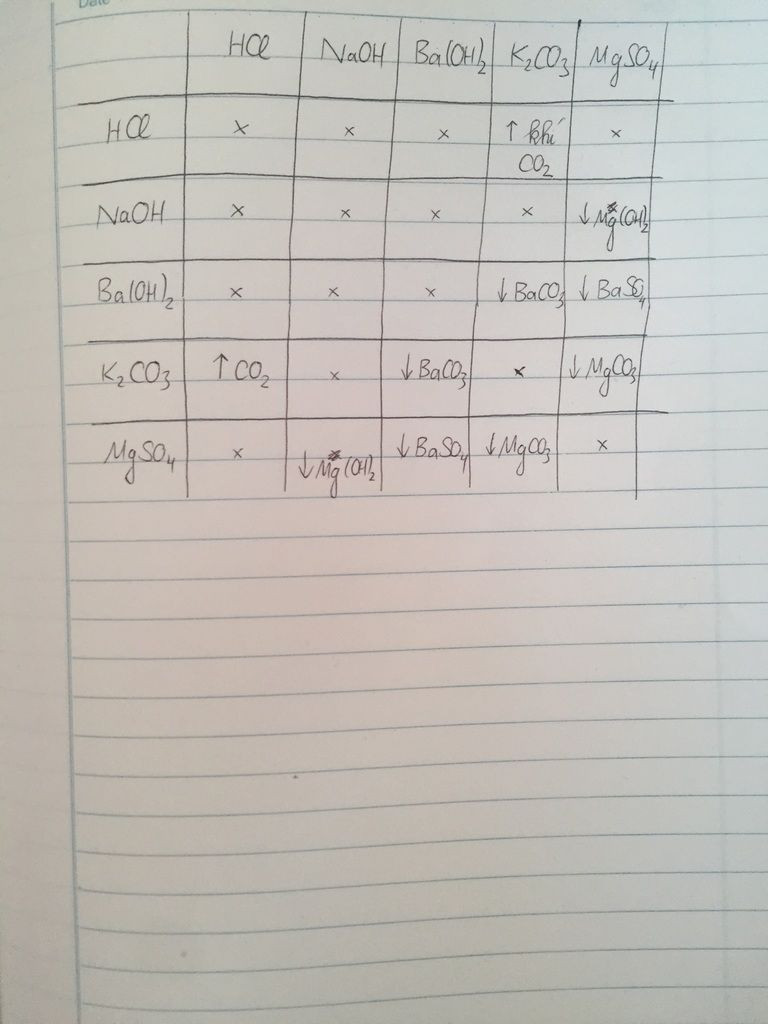 Date
HCl NaOH Ba(OH)₂ K₂CO₃ MgSO₄
HCl × × × ↑ khí CO₂ ×
NaOH × × × × ↓ Mg(OH)₂
Ba(OH)₂ × × × ↓ BaCO₃ ↓ BaSO₄
K₂CO₃ ↑ CO₂ × ↓ BaCO₃ × ↓ MgCO₃
MgSO₄ × ↓ Mg(OH)₂ ↓ BaSO₄ ↓ MgCO₃ ×